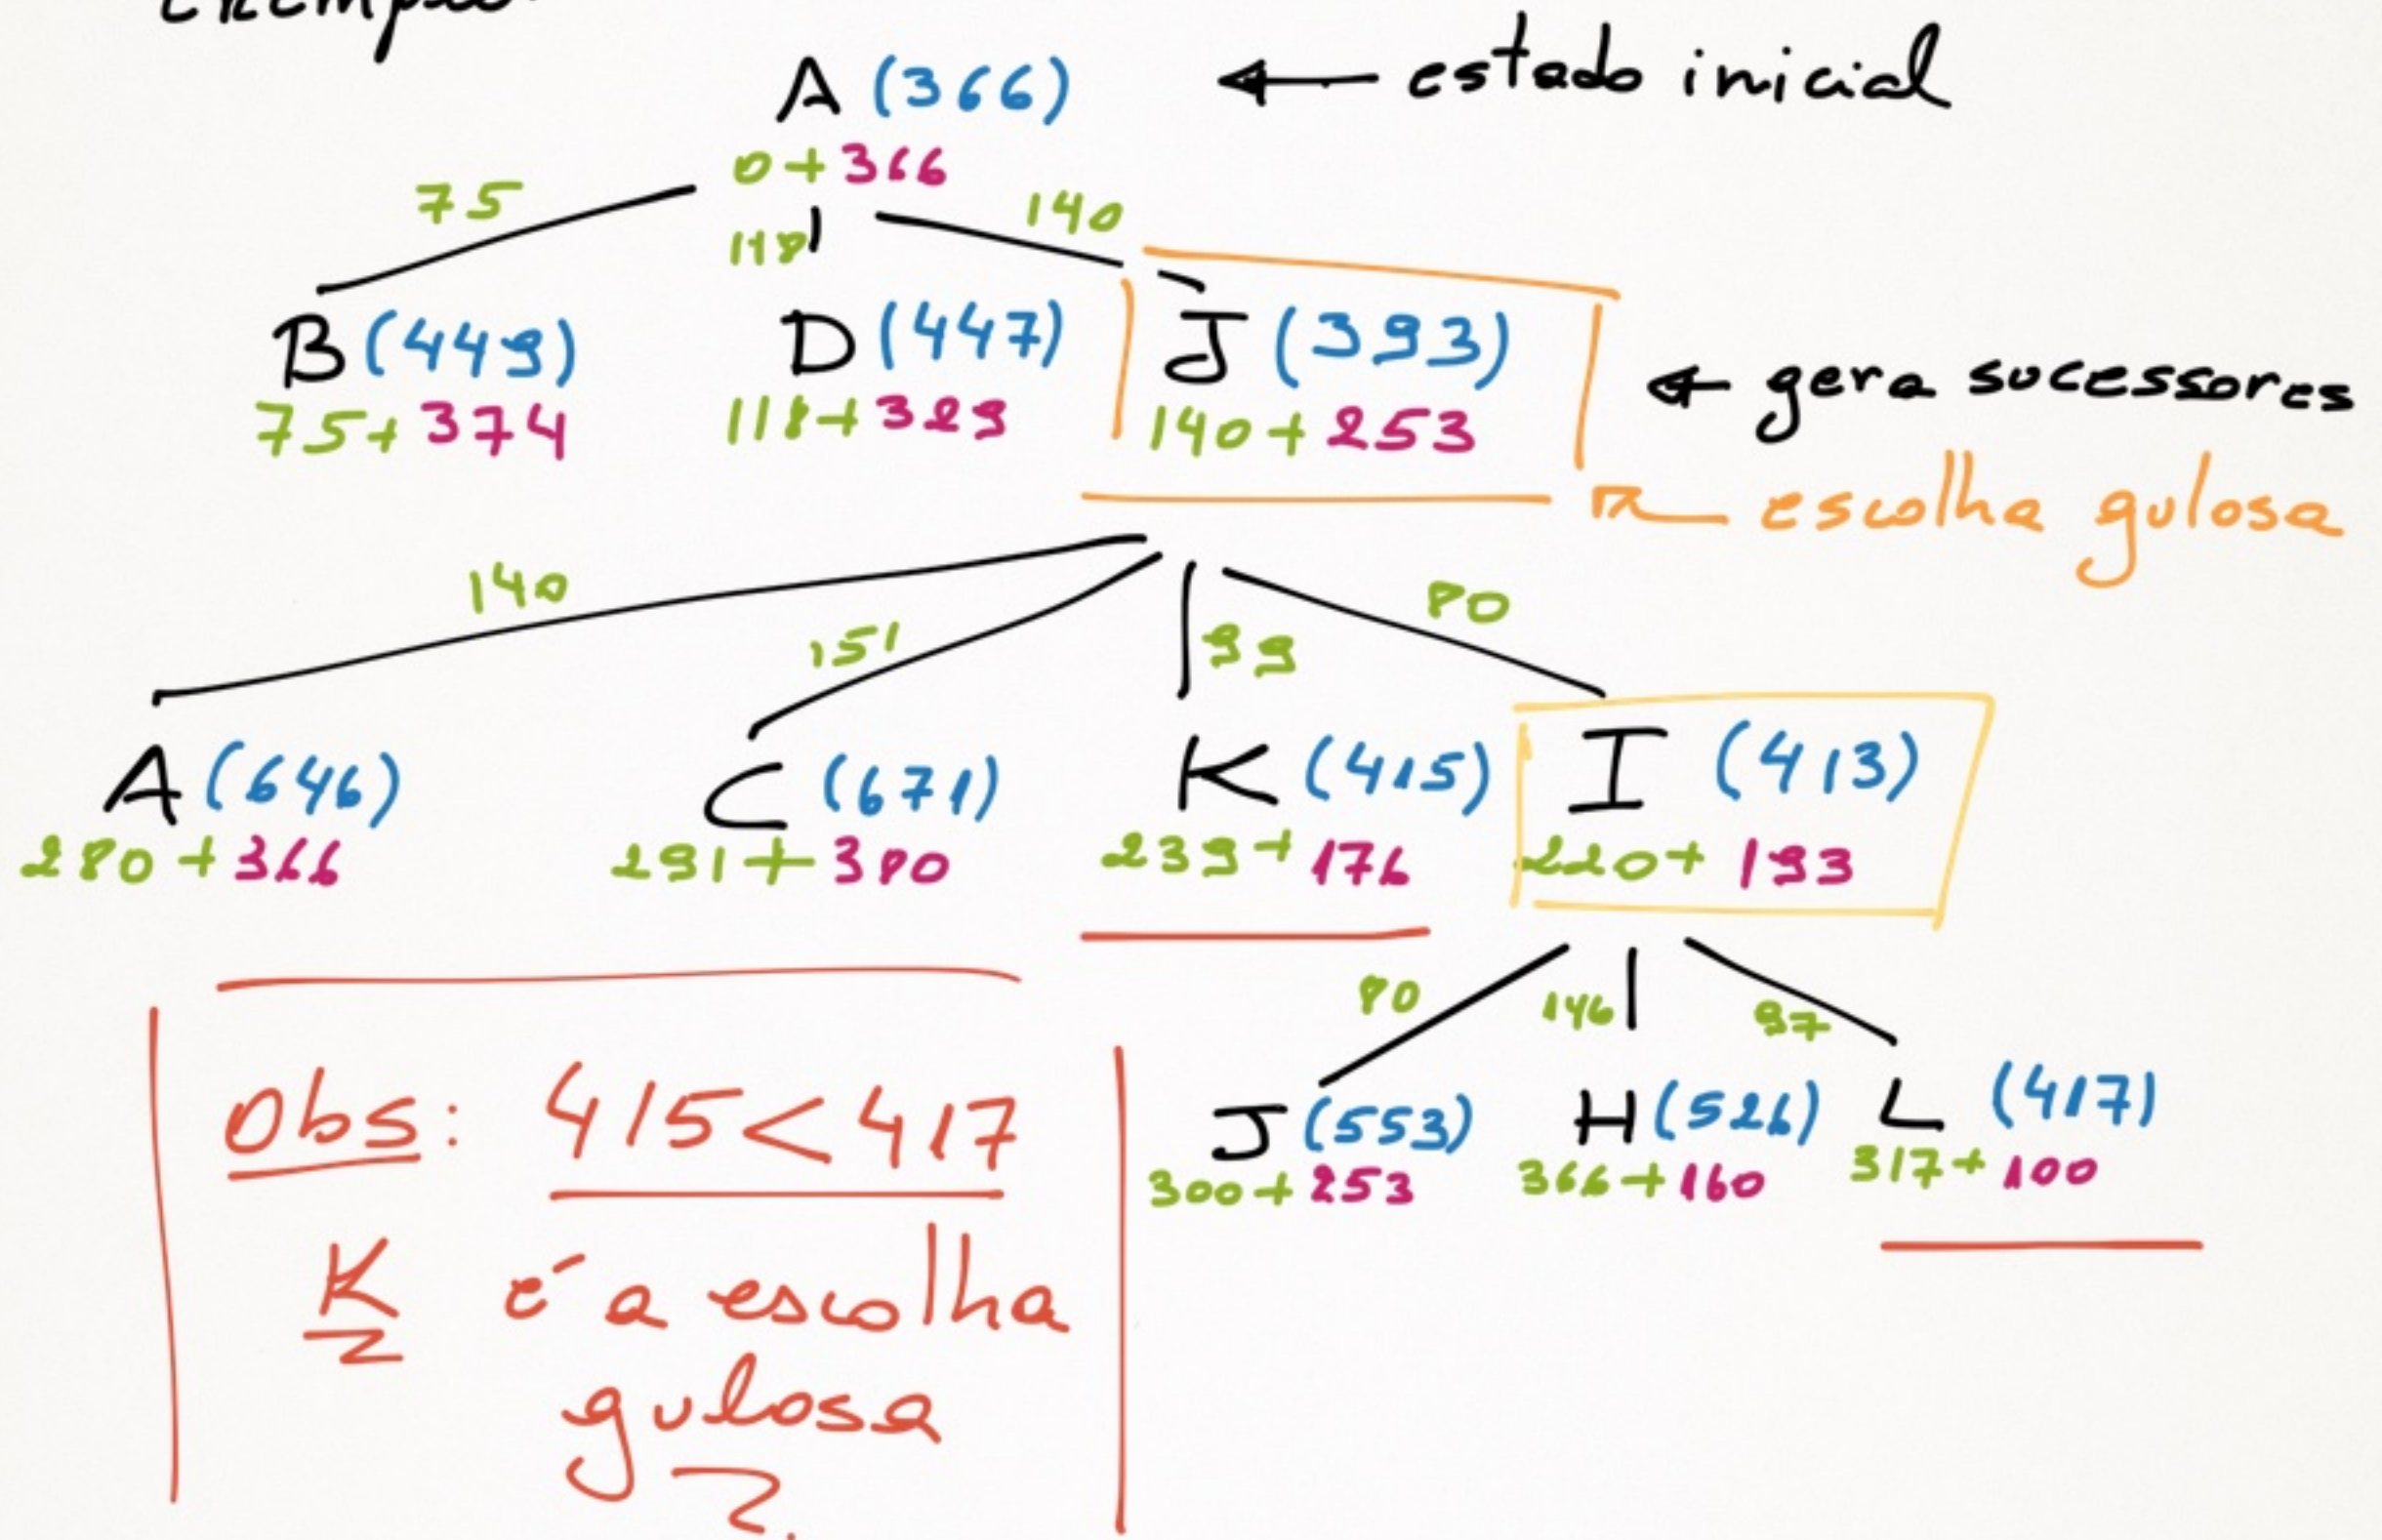 exemplo
A (366) ← estado inicial
0 + 366
75
118
140
B (449) D (447) J (393) ← gera sucessores
75 + 374 118 + 329 140 + 253
escolha gulosa
140 151 99 80
A (646) C (671) K (415) I (413)
280 + 366 291 + 380 239 + 176 220 + 193
80 146 97
J (553) H (526) L (417)
300 + 253 366 + 160 317 + 100
Obs: 415 < 417
K é a escolha
gulosa